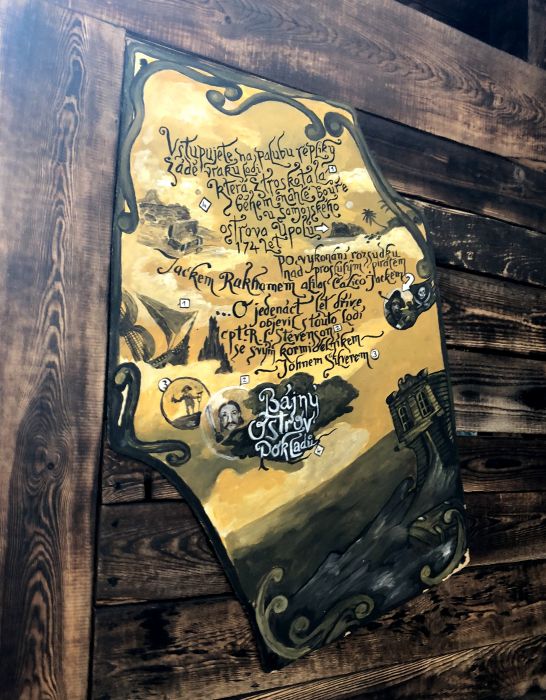 Vstupujete na palubu repliky
zádě vraku lodi
která ztroskotala 5
během náhlé bouře
4 u Samojského
ostrova Upolu
174 let
po vykonání rozsudku
nad proslulým pirátem
Jackem Rakhamem alias Calico Jackem
1
...O jedenáct let dříve
objevil s touto lodí
cpt. R. L. Stevenson 2
se svým kormidelníkem
Johnem Silverem 3
3
2
Bájný
Ostrov
Pokladů
4